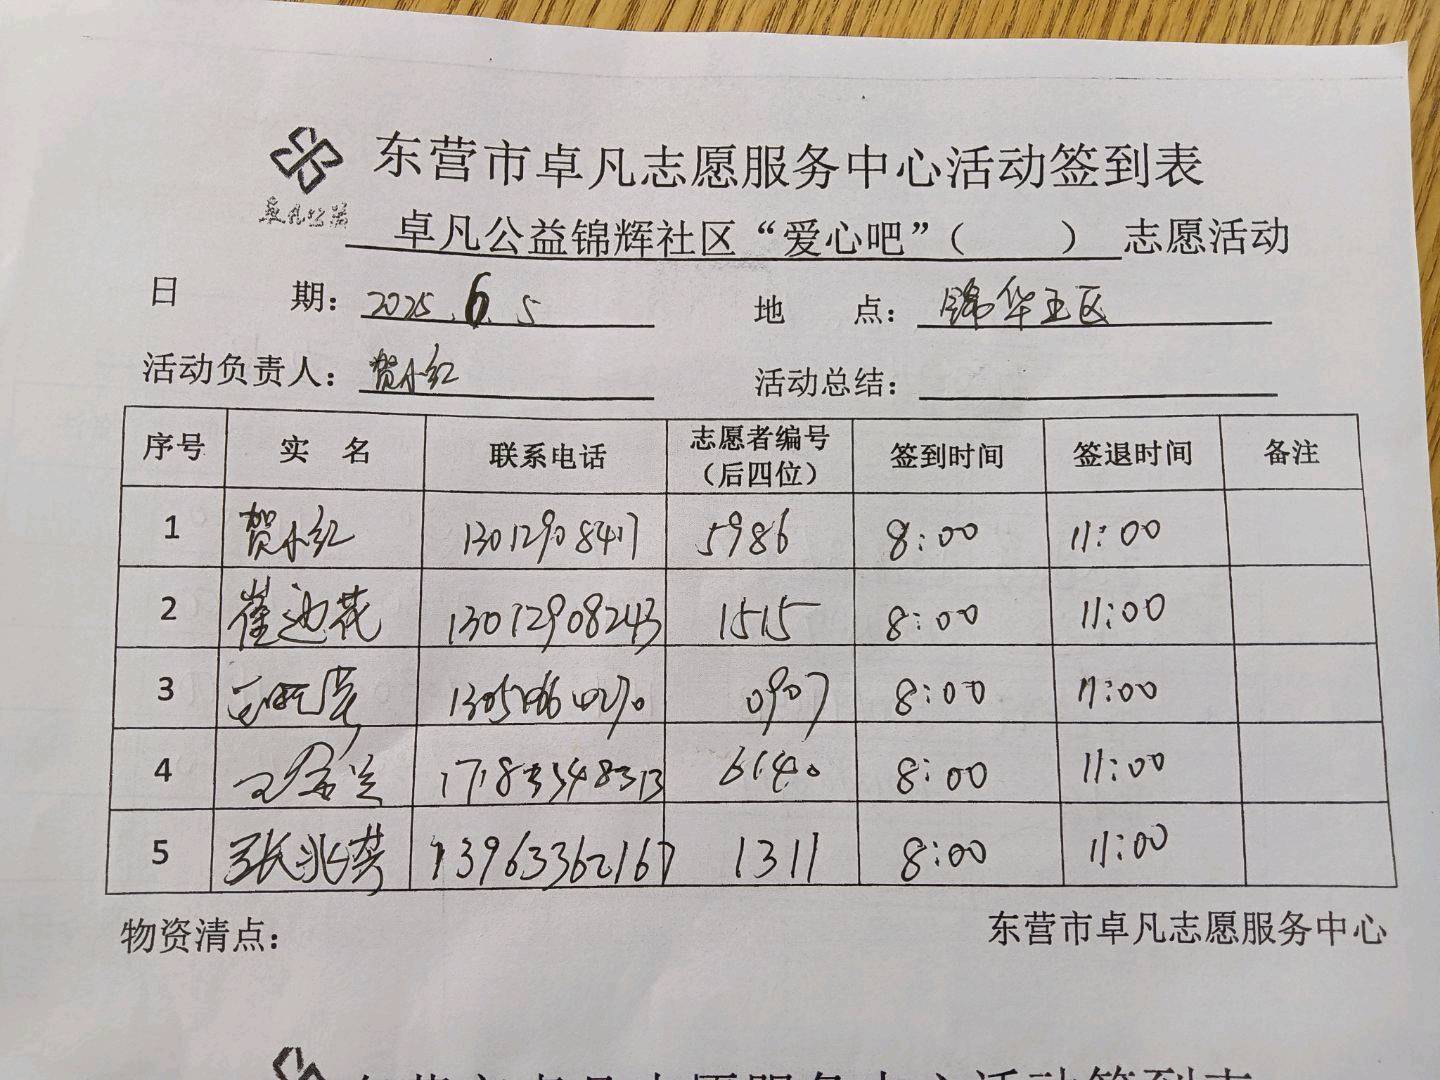 东营市卓凡志愿服务中心活动签到表
卓凡公益
卓凡公益锦辉社区“爱心吧”（　　）志愿活动
日　期：2025.6.5　地　点：锦华五区
活动负责人：贺小红　活动总结：
序号　实　名　联系电话　志愿者编号（后四位）　签到时间　签退时间　备注
1　贺小红　13012908417　5986　8:00　11:00
2　崔迎花　13012908243　1515　8:00　11:00
3　0907　8:00　11:00
4　王　兰　6140　8:00　11:00
5　张兆英　13963362167　1311　8:00　11:00
物资清点：　东营市卓凡志愿服务中心
东营市卓凡志愿服务中心活动签到表